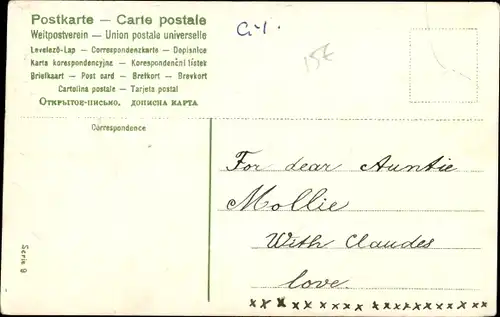 Postkarte — Carte postale
Weltpostverein — Union postale universelle
Levelező-Lap — Correspondenzkarte — Dopisnice
Karta korespondencyjna — Korespondenční lístek
Briefkaart — Post card — Brefkort — Brevkort
Cartolina postale — Tarjeta postal
Открытое-письмо. дописна карта
15€
Correspondence
For dear Auntie
Mollie
With Claudes
love.
x x x x x x x x x x x x x x x x
Serie 9